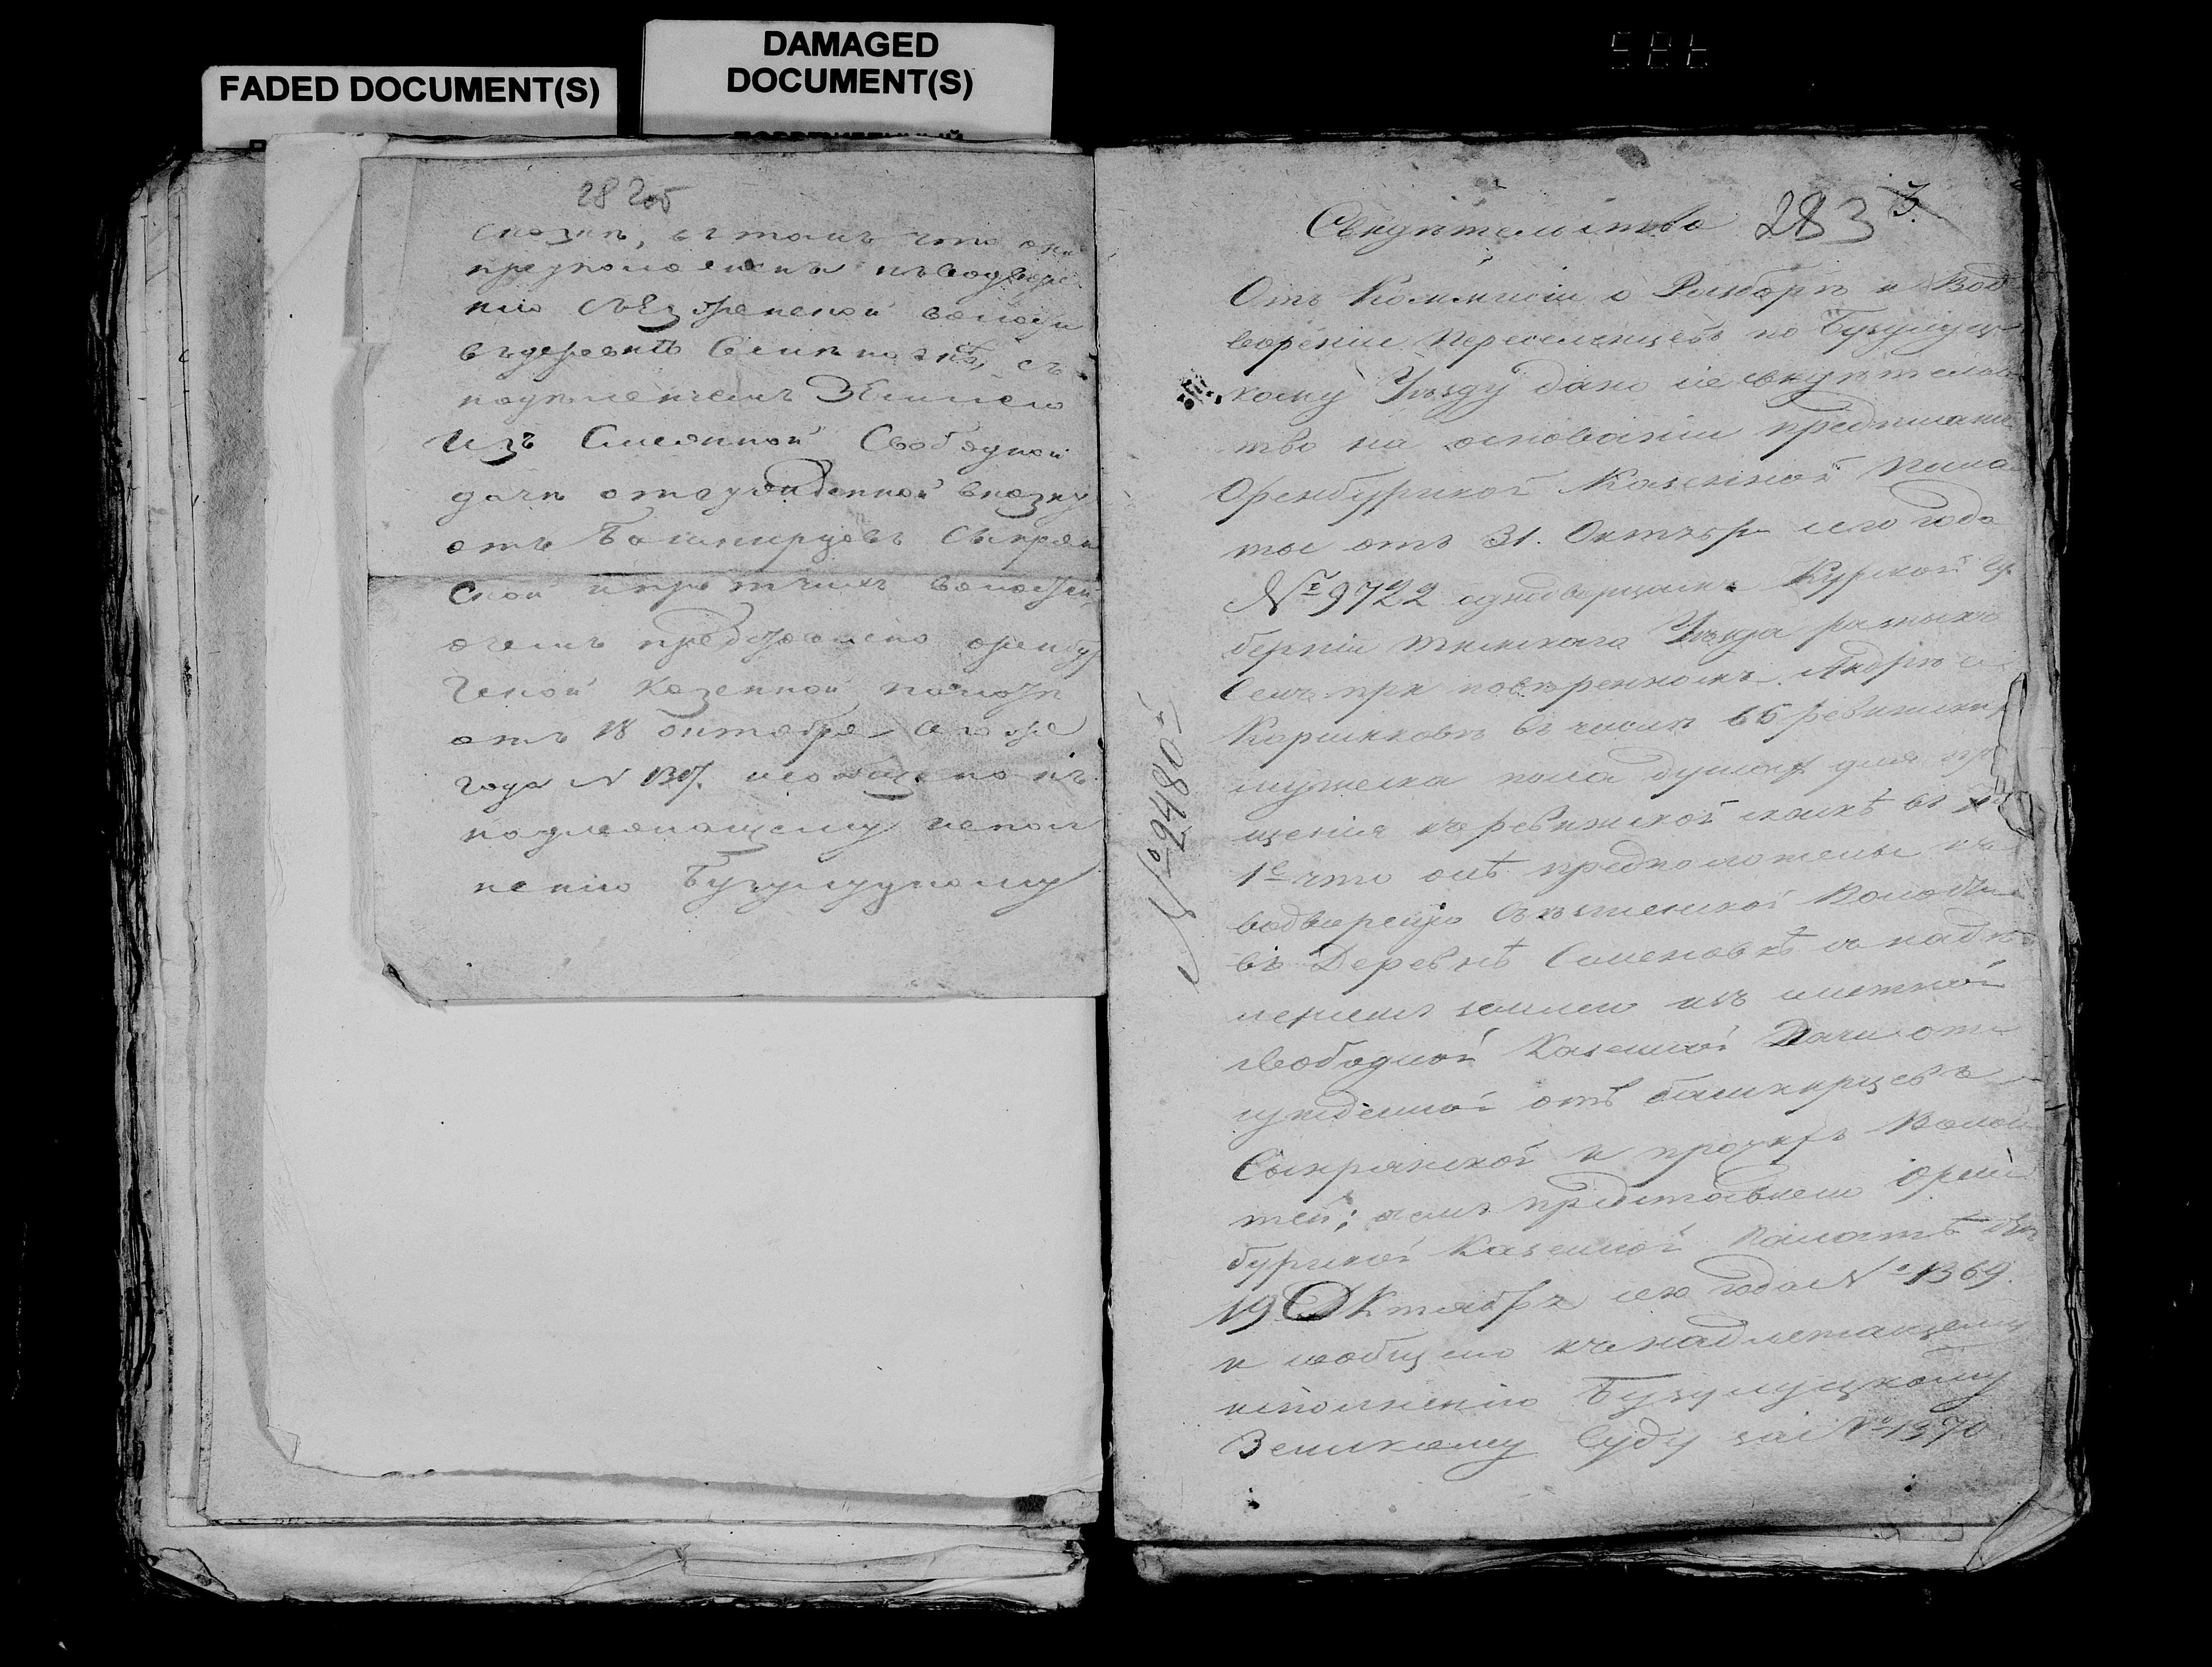 FADED DOCUMENT(S)
DAMAGED
DOCUMENT(S)
282об
сказки, втомъ что они
предположены къводворе
нию Съезженской волости
въдеревнѣ Семеновкѣ, съ
наделениемъ Землею
Изъ Смежной Свободной
дачи отсужденной вказну
отъ Башкирцовъ Сынрян
ской ипротчихъ волостей,
очемъ представлено оренбур
гской казенной палатѣ
отъ 18 октября сего же
года N 1307. исообщено къ
надлежащему испол
нению Бузулуцкому
Свидѣтельство 283 3.
Отъ Коммисіи о Разборѣ и Вод
вореніи переселенцевъ по Бузулуц
кому Уѣзду дано сіе свидѣтельс
тво на основаніи предписанія
Оренбургской Казенной Пала
ты отъ 31. Октября сего года
№ 9722 однодворцамъ Курской гу
берніи Тимскаго Уѣзда разныхъ
Селъ при повѣренномъ Андрѣе
Каршиковѣ въ числѣ 66 ревижских
мужеска пола душъ для пр
щенія къ ревижской сказкѣ въ
1е что онѣ предположены къ
водворенію Съезженской Волости
въ Деревнѣ Семеновкѣ съ надѣ
леніемъ землею изъ смежной
свободной Казенной Дачи от
сужденной отъ башкирцевъ
Сынрянской и прочихъ Волос
тей; о чемъ представлено Орен
бургской Казенной Палатѣ отъ
19 Октября сего года № 1369.
и сообщено къ надлежащему
исполненію Бузулуцкому
Земскому Суду за № 1370
№ 9480